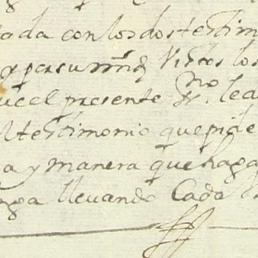 ada con los dos testim
y por su mrd Vistos los
que el presente ssno le a
el testimonio que pide
a y manera que haga
nga lleuando Cada